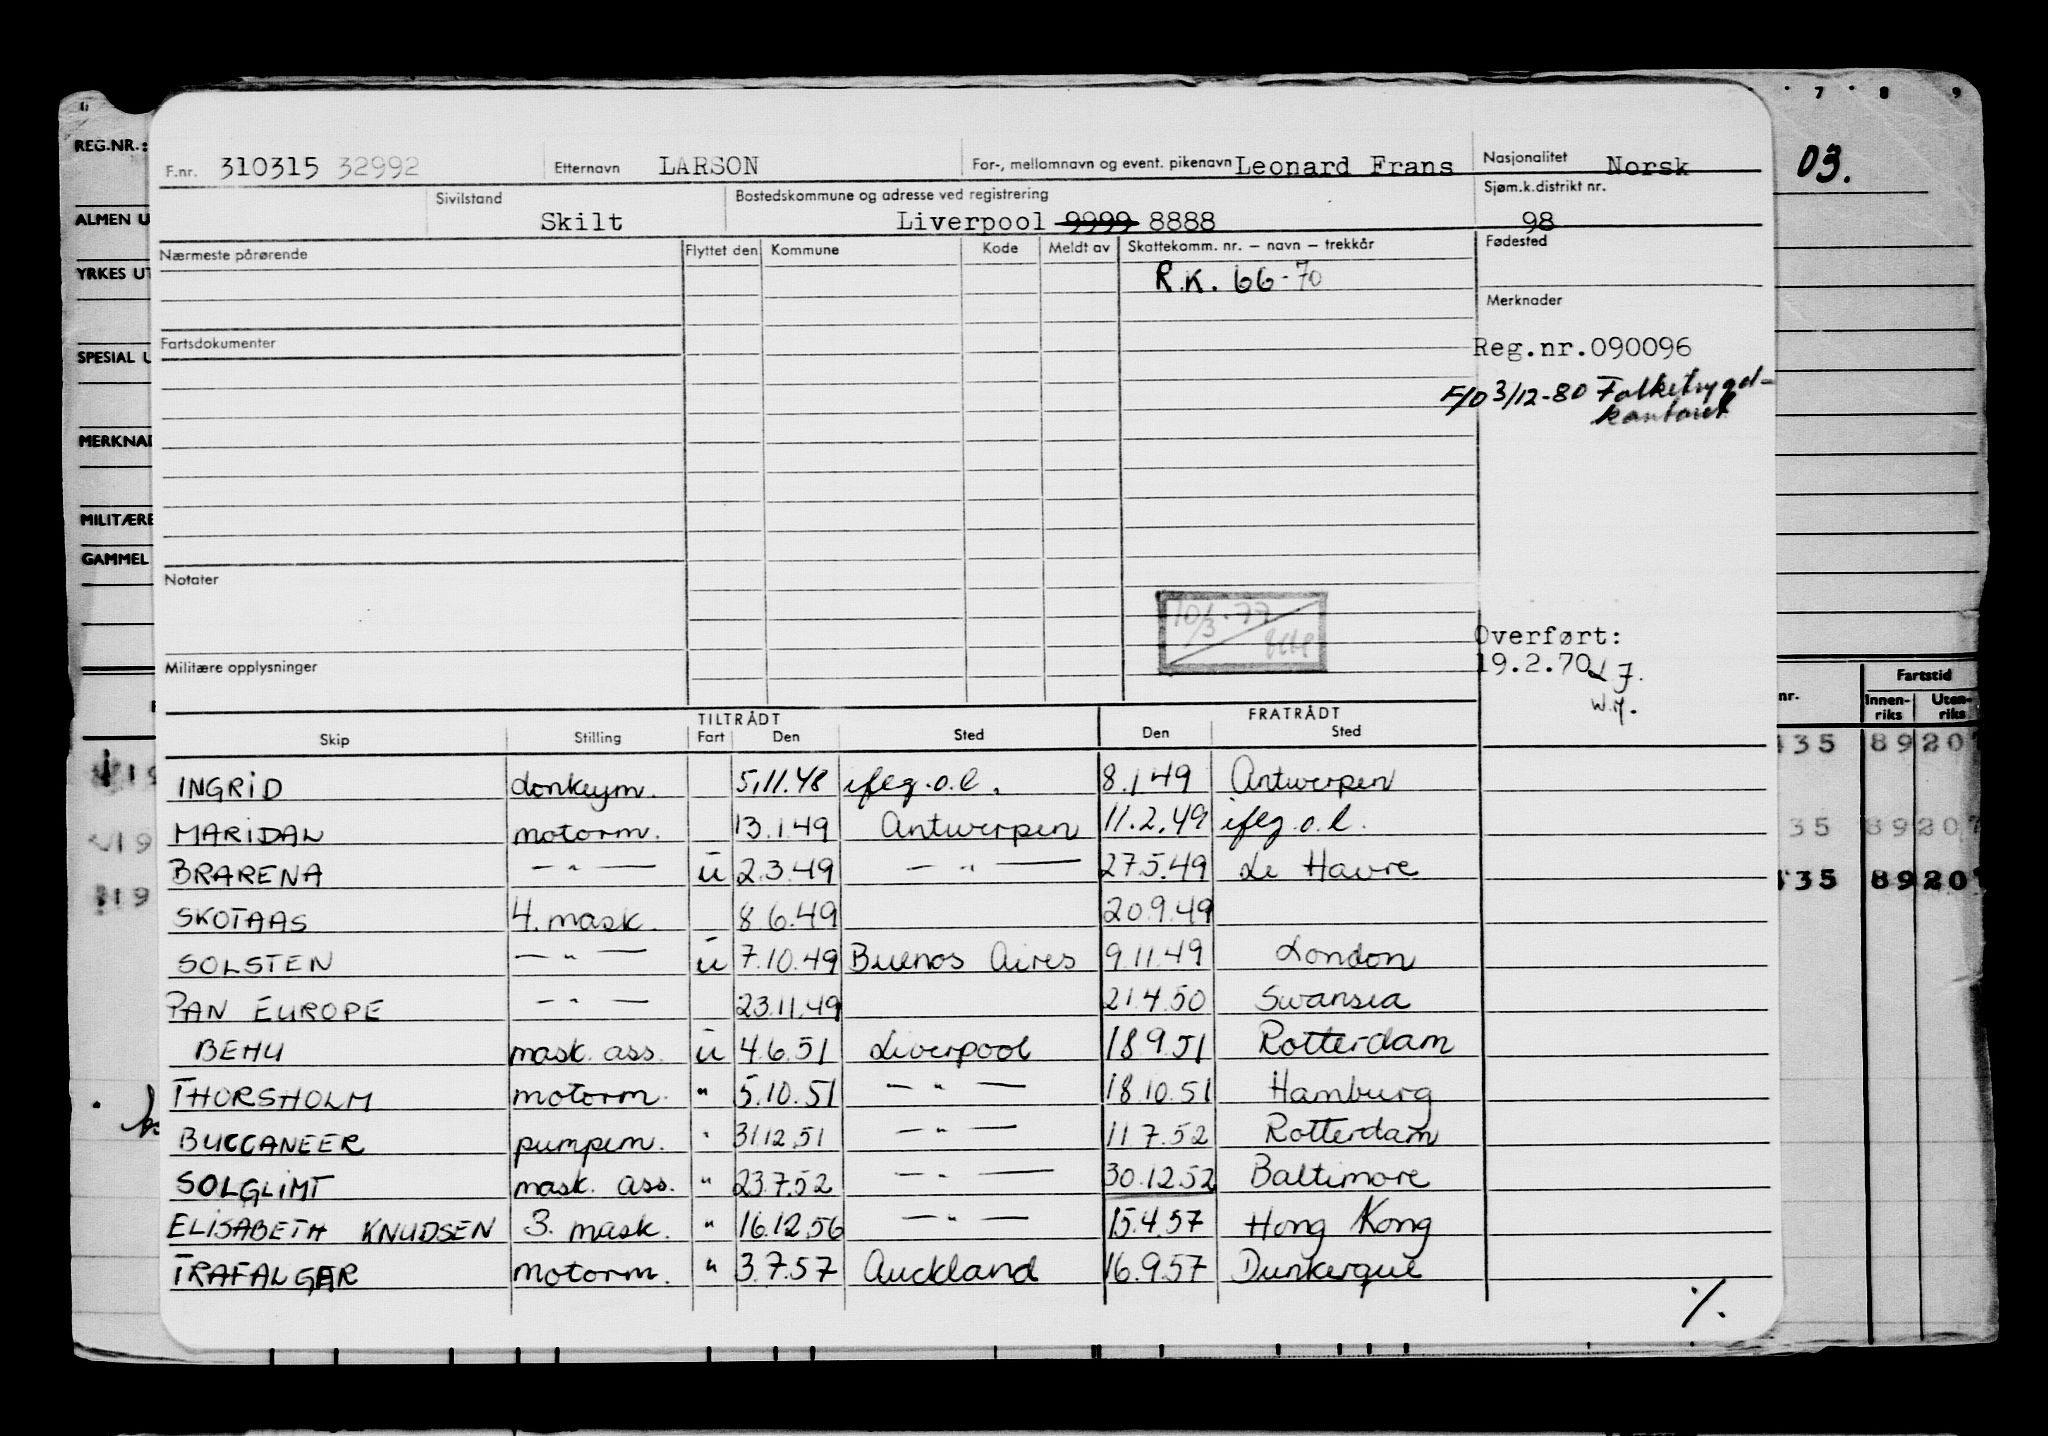 7 8 9
REG.NR.:
F.nr. 310315 32992 Etternavn LARSON For-, mellomnavn og event. pikenavn Leonard Frans Nasjonalitet Norsk 03.
ALMEN U
Sivilstand Skilt Bostedskommune og adresse ved registrering Liverpool 9999 8888 Sjøm.k.distrikt nr. 98
YRKES UT
Nærmeste pårørende Flyttet den Kommune Kode Meldt av Skattekomm. nr. – navn – trekkår Fødested
R.K. 66-70
Merknader
SPESIAL U
Fartsdokumenter Reg.nr.090096
F/O 3/12-80 Folketrygd-
kontoret
MERKNAD
MILITÆRE
GAMMEL
Notater
10/3-77
Overført:
Militære opplysninger 19.2.70 LJ.
W.J.
nr. Fartstid
Innen-riks Uten-riks
TILTRÅDT FRATRÅDT
Skip Stilling Fart Den Sted Den Sted
INGRID donkeym. 5.11.48 iflg. o.l. 8.1.49 Antwerpen
MARIDAN motorm. 13.1.49 Antwerpen 11.2.49 iflg. o.l.
BRARENA — " — u 2.3.49 — " — 27.5.49 Le Havre
SKOTAAS 4. mask. 8.6.49 20.9.49
SOLSTEN — " — u 7.10.49 Buenos Aires 9.11.49 London
PAN EUROPE — " — 23.11.49 21.4.50 Swansea
BEHU mask. ass. u 4.6.51 Liverpool 18.9.51 Rotterdam
THORSHOLM motorm. " 5.10.51 — " — 18.10.51 Hamburg
BUCCANEER pumpem. " 31.12.51 — " — 11.7.52 Rotterdam
SOLGLIMT mask. ass. " 23.7.52 — " — 30.12.52 Baltimore
ELISABETH KNUDSEN 3. mask. " 16.12.56 — " — 15.4.57 Hong Kong
TRAFALGAR motorm. " 3.7.57 Auckland 16.9.57 Dunkerque
./.
435 89 207
35 89 207
435 89 207